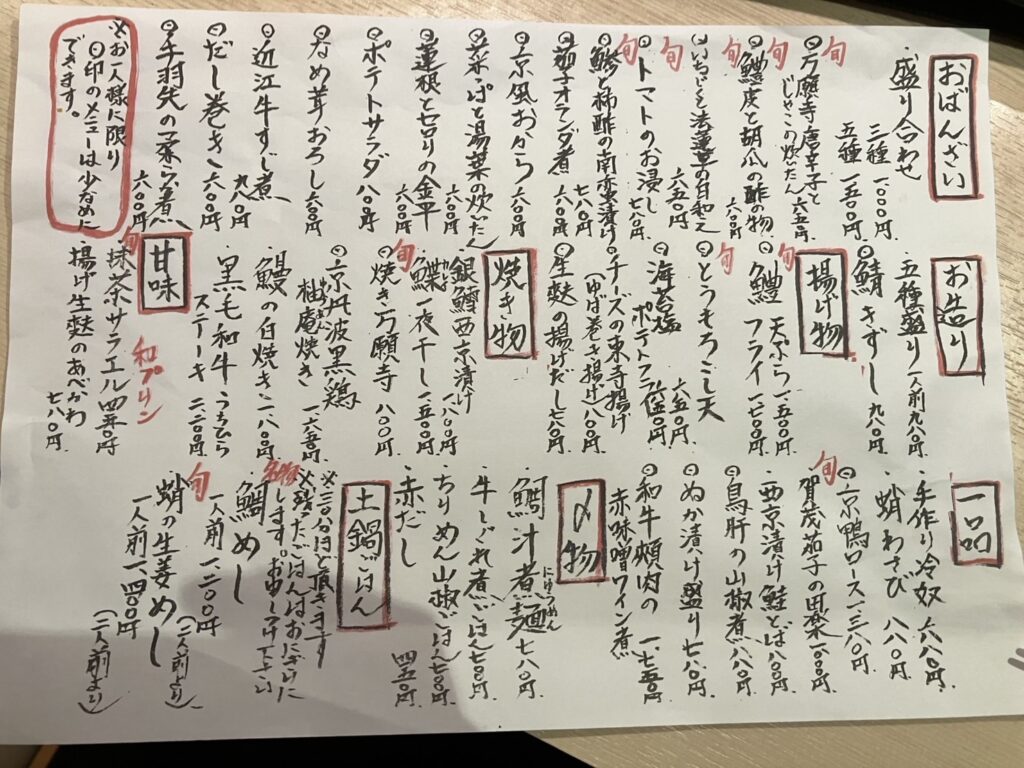 おばんざい
・盛り合わせ
三種 一、〇〇〇円
五種 一、五〇〇円
旬
◎万願寺唐辛子と
じゃこの炊いたん 六五〇円
旬
◎鱧皮と胡瓜の酢の物 六〇〇円
旬
いちじくと法蓮草の白和え 六五〇円
旬
◎トマトのお浸し 七八〇円
旬
鯵と柿酢の南蛮漬け 七八〇円
◎茄子オランダ煮 六八〇円
◎京風おから 六〇〇円
◎菜っぱと湯葉の炊いたん 六〇〇円
◎蓮根とセロリの金平 六〇〇円
◎ポテトサラダ 八〇〇円
◎なめ茸おろし 六〇〇円
◎近江牛すじ煮 九八〇円
◎だし巻き 六〇〇円
◎手羽先の柔らか煮 六〇〇円
※お一人様に限り
◎印のメニューは少なめに
できます。
お造り
・五種盛り 一人前 九八〇円
◎鯖きずし 九八〇円
揚げ物
旬
◎鱧 天ぷら 一、五〇〇円
フライ 一、七〇〇円
旬
◎とうもろこし天 六五〇円
◎海老芋
ポテトフライ 六五〇円
◎チーズの東寺揚げ
(ゆば巻き揚げ) 八〇〇円
◎生麩の揚げだし 七八〇円
焼き物
・銀鱈西京漬け 一、八〇〇円
・鰈一夜干し 一、五〇〇円
旬
◎焼き万願寺 八〇〇円
◎京丹波黒鶏
柚庵焼き 一、六五〇円
・鰻の白焼き 二、八〇〇円
・黒毛和牛うちひら
ステーキ 二、二〇〇円
甘味
和プリン
旬
・抹茶サラエル 四五〇円
・揚げ生麩のあべかわ 七八〇円
一品
・手作り冷奴 六八〇円
・蛸わさび 八八〇円
◎京鴨ロース 一、三八〇円
旬
・賀茂茄子の田楽 一、〇〇〇円
・西京漬け鮭とば 八〇〇円
◎鳥肝の山椒煮 八八〇円
◎ぬか漬け盛り 七八〇円
◎和牛頬肉の
赤味噌ワイン煮 一、七五〇円
〆物
・鯛汁煮麺 七八〇円
にゅうめん
・牛しぐれ煮ごはん 七〇〇円
・ちりめん山椒ごはん 七〇〇円
・赤だし 四五〇円
土鍋ごはん
※三〇分ほど頂きます
※残ったごはんはおにぎりに
します。お申しつけ下さい
名物
・鯛めし
一人前 一、二〇〇円
(二人前より)
旬
・蛸の生姜めし
一人前 一、四〇〇円
(二人前より)